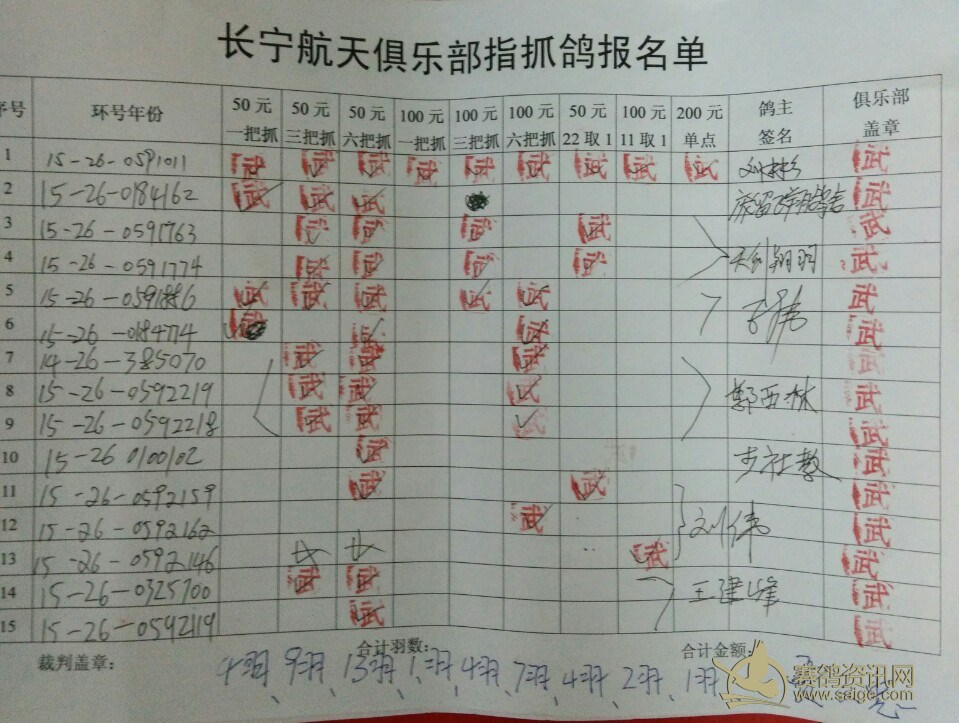 长宁航天俱乐部指抓鸽报名单
序号 环号年份 50元一把抓 50元三把抓 50元六把抓 100元一把抓 100元三把抓 100元六把抓 50元22取1 100元11取1 200元单点 鸽主签名 俱乐部盖章
1 15-26-0591011 武 武 武 武 武 武 武 武 武 武
2 15-26-0184162 武 武 武 武
3 15-26-0591763 武 武 武 武 武
4 15-26-0591774 武 武 武 武 天剑翔羽 武
5 15-26-0591886 武 武 武 武 武 武
6 15-26-0184774 武 武 武 武
7 14-26-385070 武 武 武 武
8 15-26-0592219 武 武 武 郭西林 武
9 15-26-0592218 武 武 武
10 15-26 0100102 武 武
11 15-26-0592159 武 武 武
12 15-26-0592162 武 刘伟 武
13 15-26-0592146 武 武
14 15-26-0325700 武 武 王建峰 武
15 15-26-0592119 武 武
裁判盖章： 合计羽数： 合计金额：
4羽、9羽、13羽、1羽、4羽、7羽、4羽、2羽、1羽
赛鸽资讯网
www.saige.com